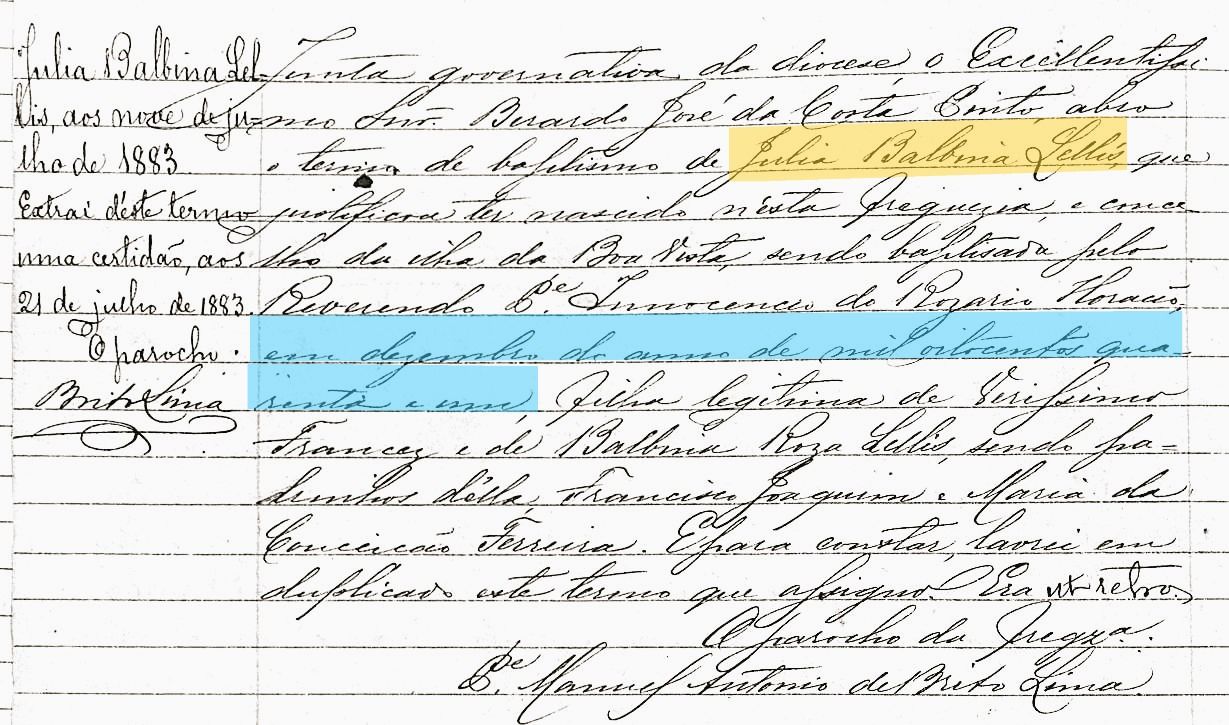 Julia Balbina Lel-
lis, aos nove de ju-
lho de 1883
Extrai d'éste termo
uma certidão, aos
21 de julho de 1883.
O parocho.
Brito Lima
Junta governativa da diocese, o Excellentissi
mo Snr. Berardo José da Costa Pinto, abro
o termo de baptismo de Julia Balbina Lellis, que
justificou ter nascido n'ésta freguezia, e conce
lho da ilha da Boa Vista, sendo baptisada pelo
Reverendo Pe. Innocencio do Rozario Horacio,
em dezembro do anno de mil oitocentos qua-
renta e um, filha legitima de Verissimo
Francez e de Balbina Roza Lellis, sendo pa-
drinhos d'élla, Francisco Joaquim e Maria da
Conceicão Ferreira. E para constar, lavrei em
duplicado este termo que assigno. Era ut retro.
O parocho da Fregza.
Pe. Manuel Antonio de Brito Lima.